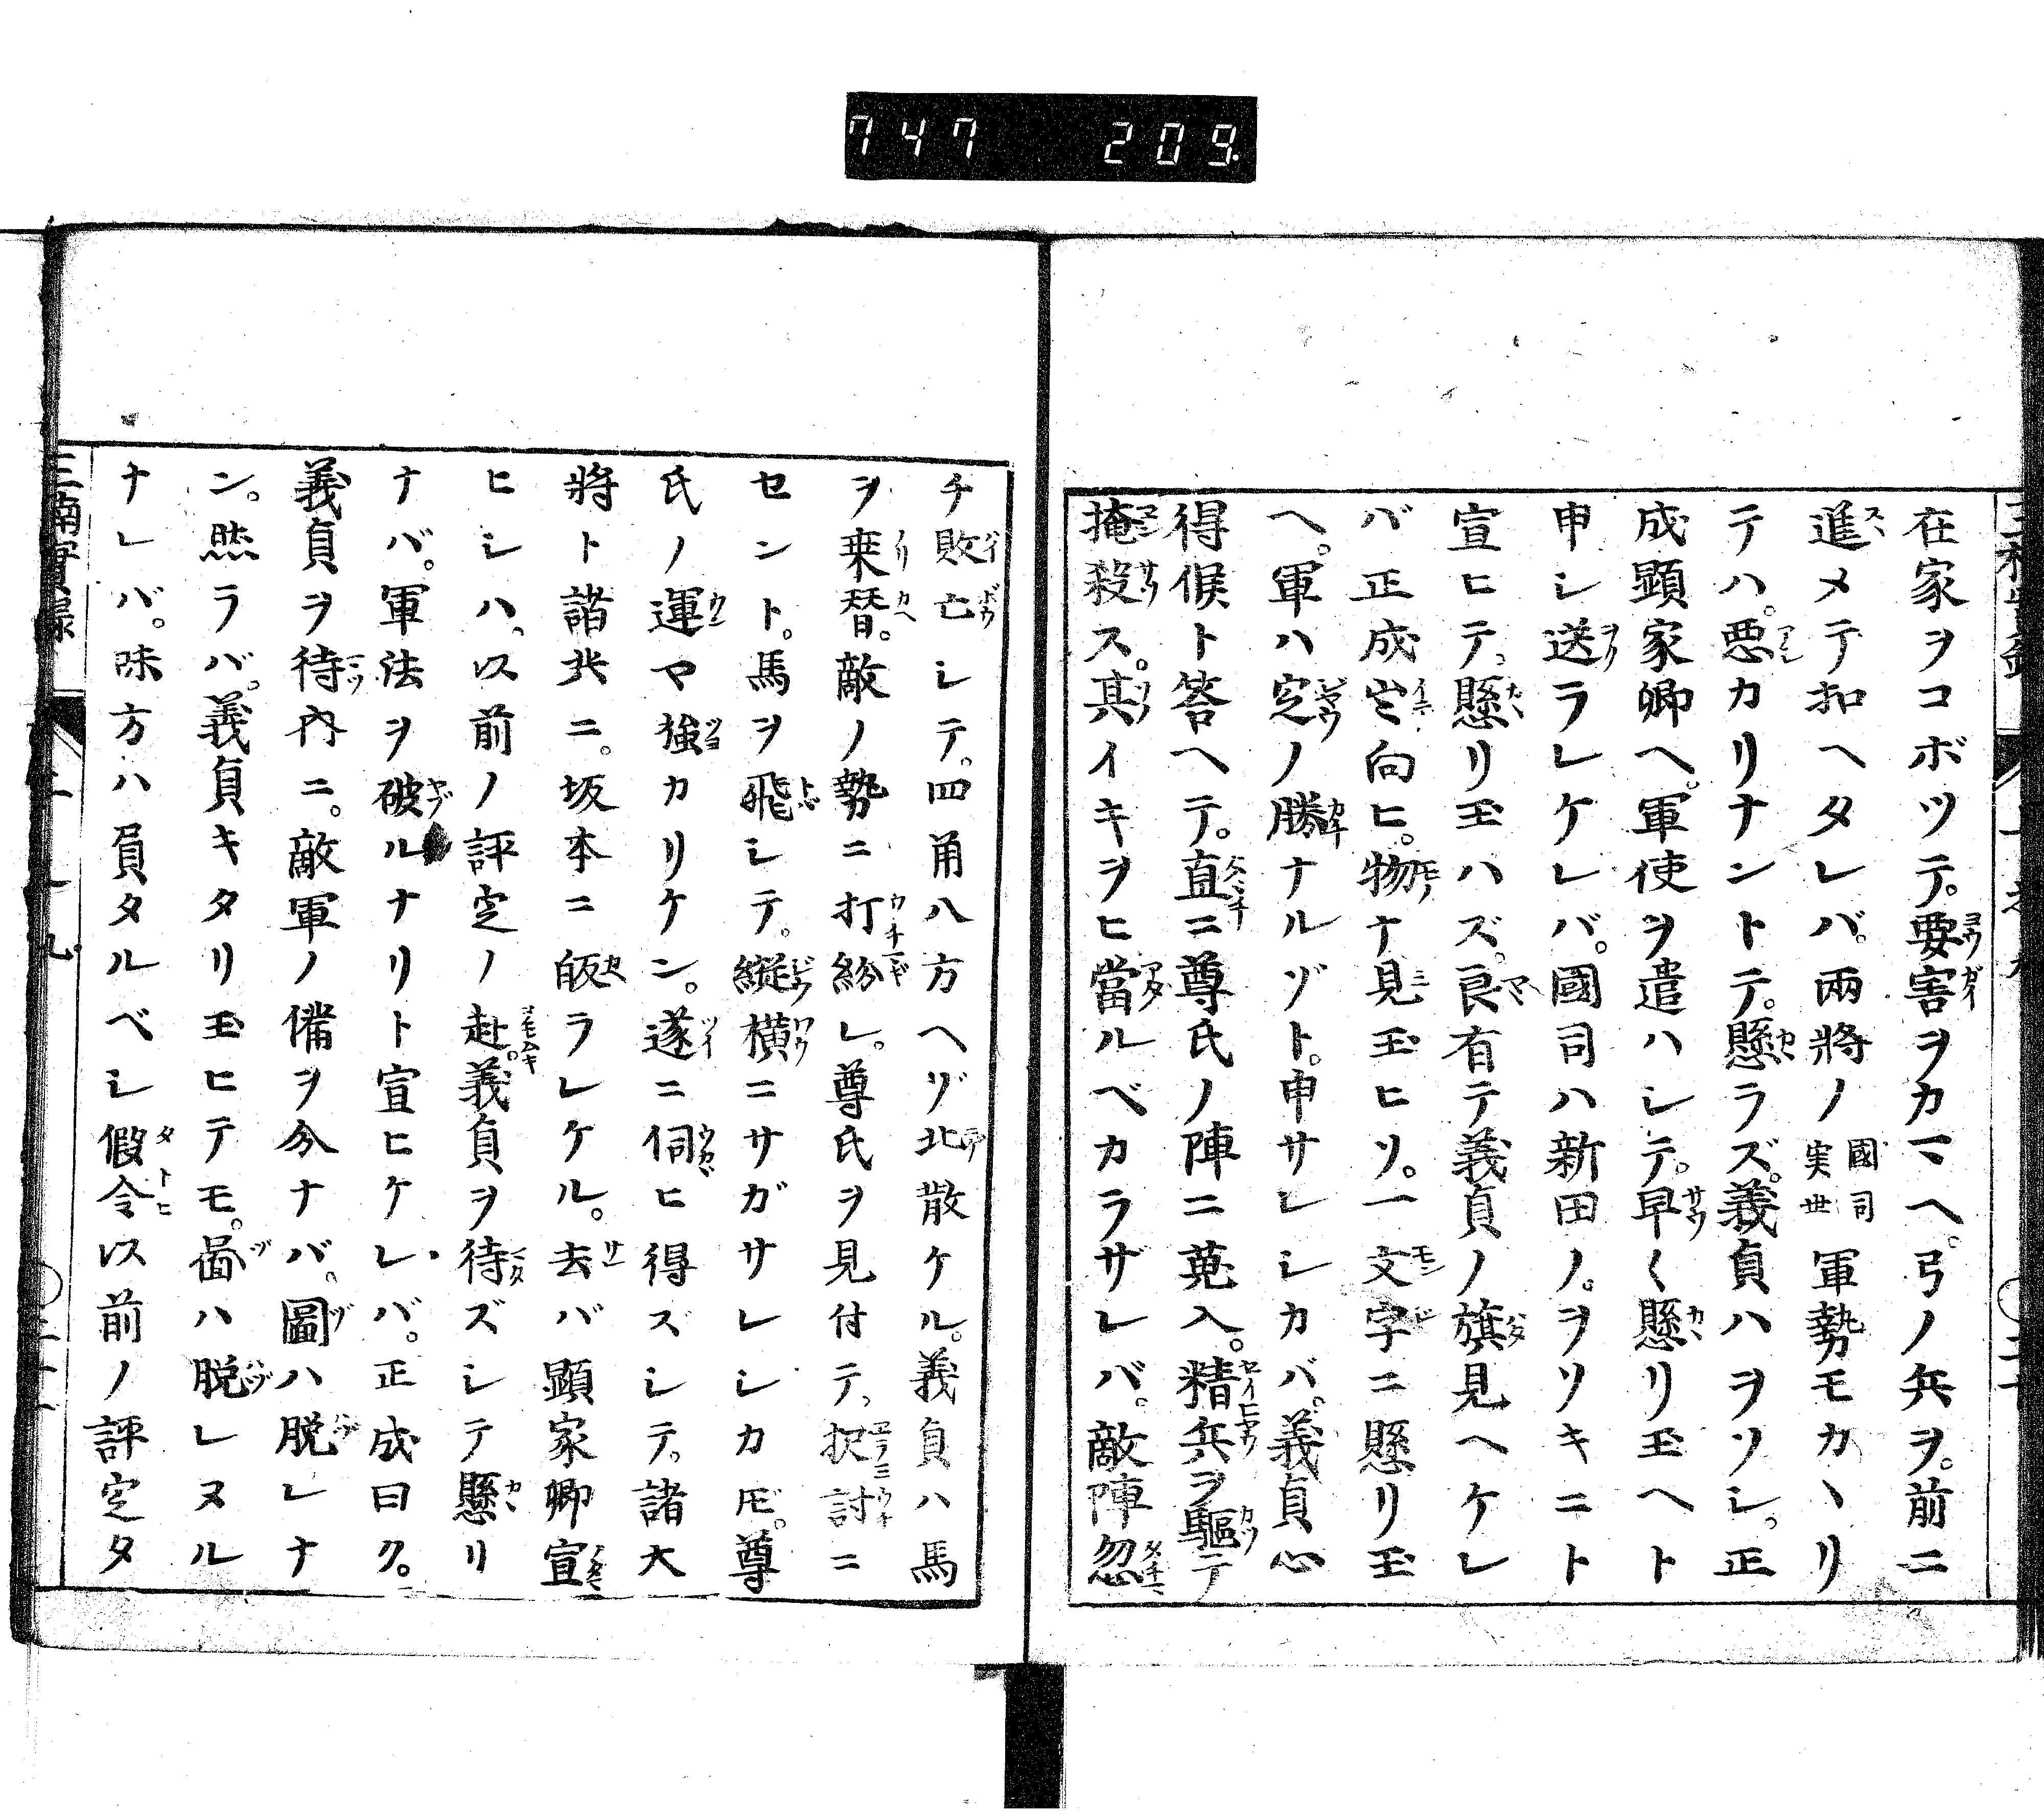 747 209
在家ヲコボツテ。要害ヲカマヘ。弓ノ兵ヲ。前ニ
進メテ扣ヘタレバ。兩將ノ國司実世軍勢モカヽリ
テハ。悪カリナントテ。懸ラズ。義貞ハヲソシ。正
成顕家卿ヘ。軍使ヲ遣ハシテ。早く懸リ玉ヘト
申シ送ラレケレバ。國司ハ新田ノ。ヲソキニト
宣ヒテ。懸リ玉ハズ。良有テ義貞ノ旗見ヘケレ
バ正成[] 向ヒ。物ナ見玉ヒソ。一文字ニ懸リ玉
ヘ。軍ハ定ノ勝ナルゾト。申サレシカバ。義貞心
得候ト答ヘテ。直ニ尊氏ノ陣ニ蒐入。精兵ヲ驅テ
掩殺ス。其イキヲヒ當ルベカラザレバ。敵陣忽
チ敗亡シテ。四角八方ヘゾ北散ケル。義貞ハ馬
ヲ乗替。敵ノ勢ニ打紛レ。尊氏ヲ見付テ、択討ニ
セント。馬ヲ飛シテ。縦横ニサガサレシカ𪜈。尊
氏ノ運マ強カリケン。遂ニ伺ヒ得ズシテ。諸大
將ト諸共ニ。坂本ニ皈ラレケル。去バ顕家卿宣
ヒシハ、以前ノ評定ノ赴。義貞ヲ待ズシテ懸リ
ナバ。軍法ヲ破ルナリト宣ヒケレバ。正成曰ク。
義貞ヲ待内ニ。敵軍ノ備ヲ分ナバ。圖ハ脱レナ
ン。然ラバ。義貞キタリ玉ヒテモ。啚ハ脱レヌル
ナレバ。味方ハ負タルベシ假令以前ノ評定タ
三楠實録